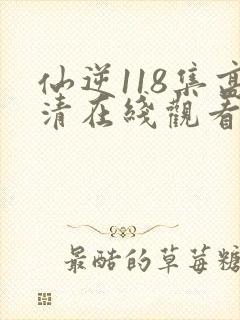 仙逆118集高
清在綫觀看
最酷的草莓糖